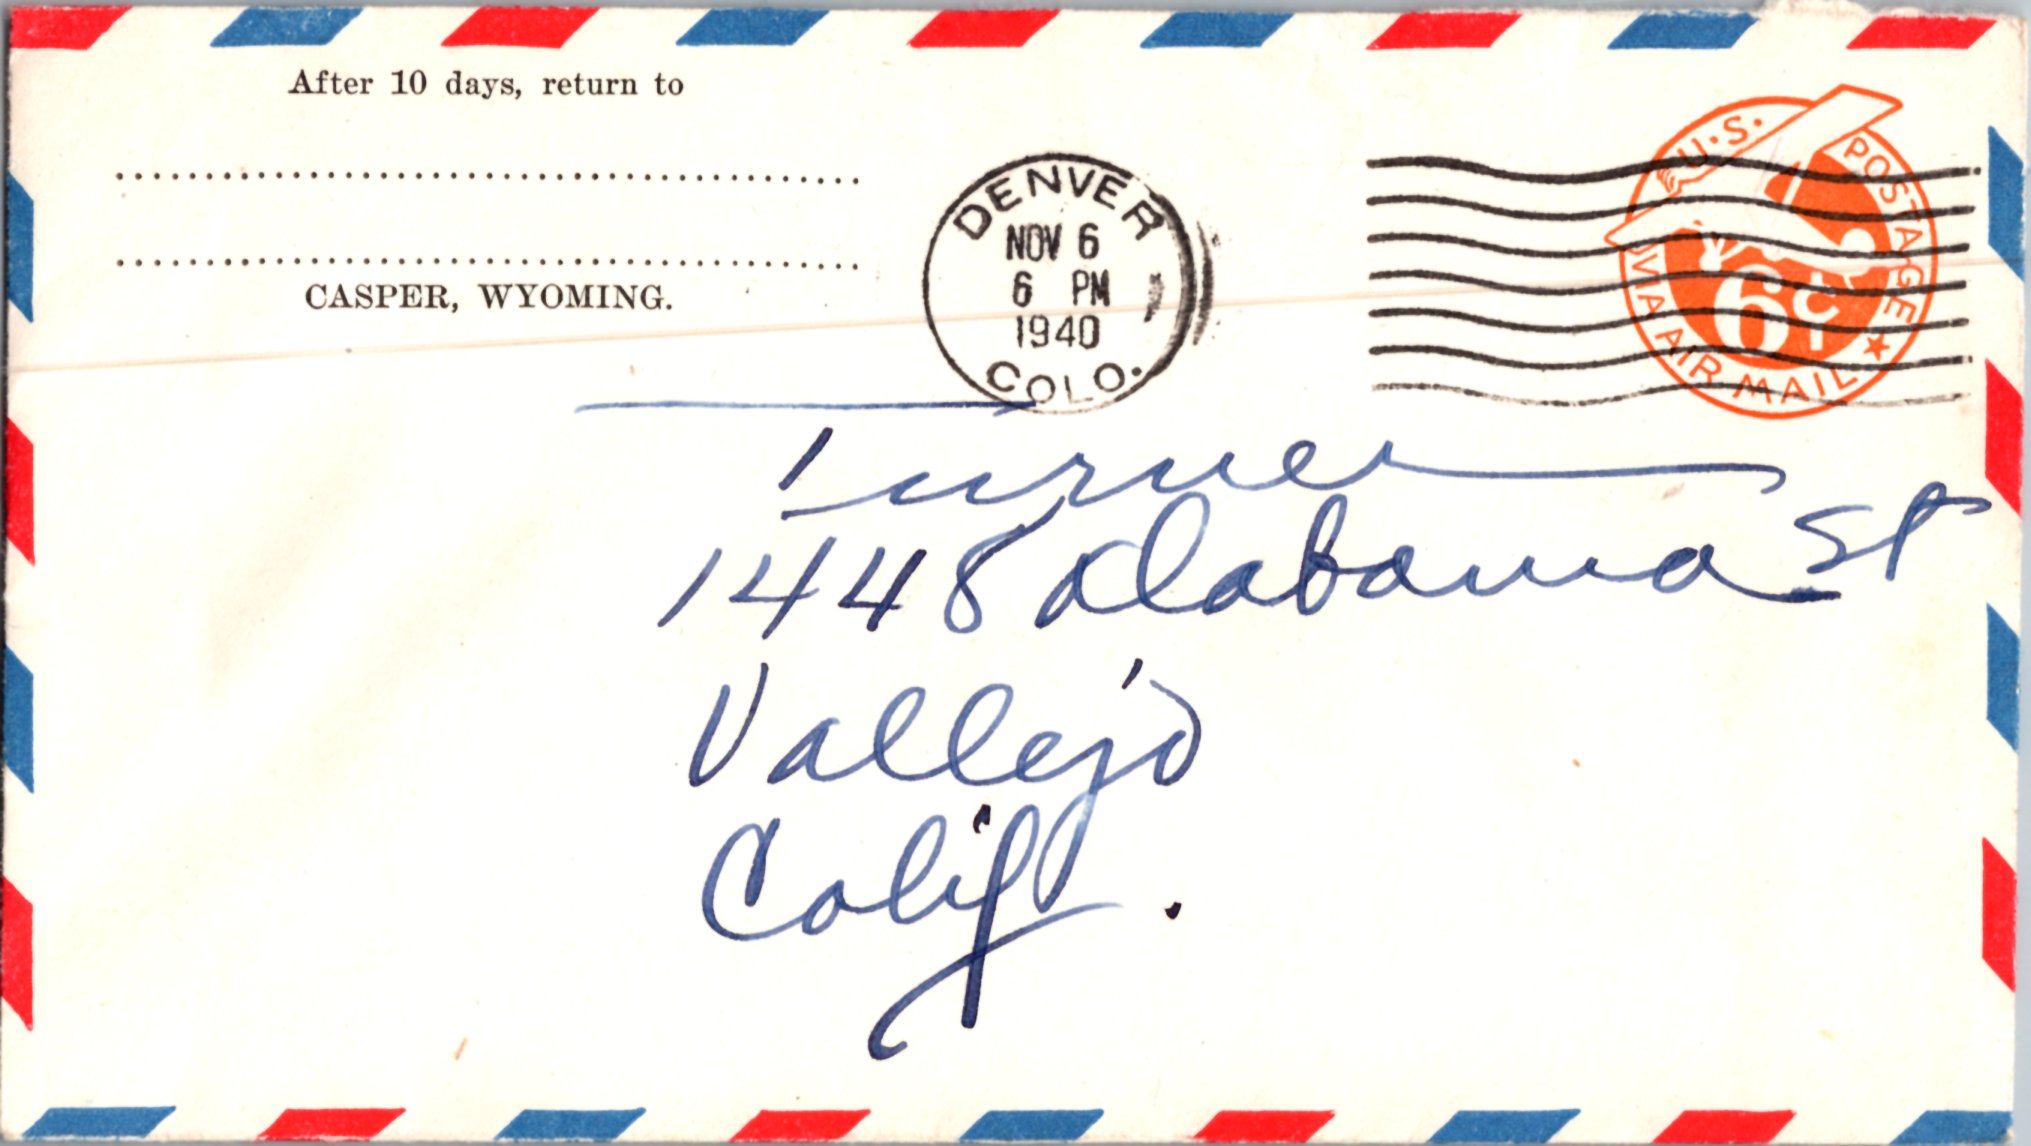 After 10 days, return to
CASPER, WYOMING.
DENVER
NOV 6
6 PM
1940
COLO.
U.S. POSTAGE
6¢
VIA AIR MAIL
Turner
1448 Alabama St
Vallejo
Calif.